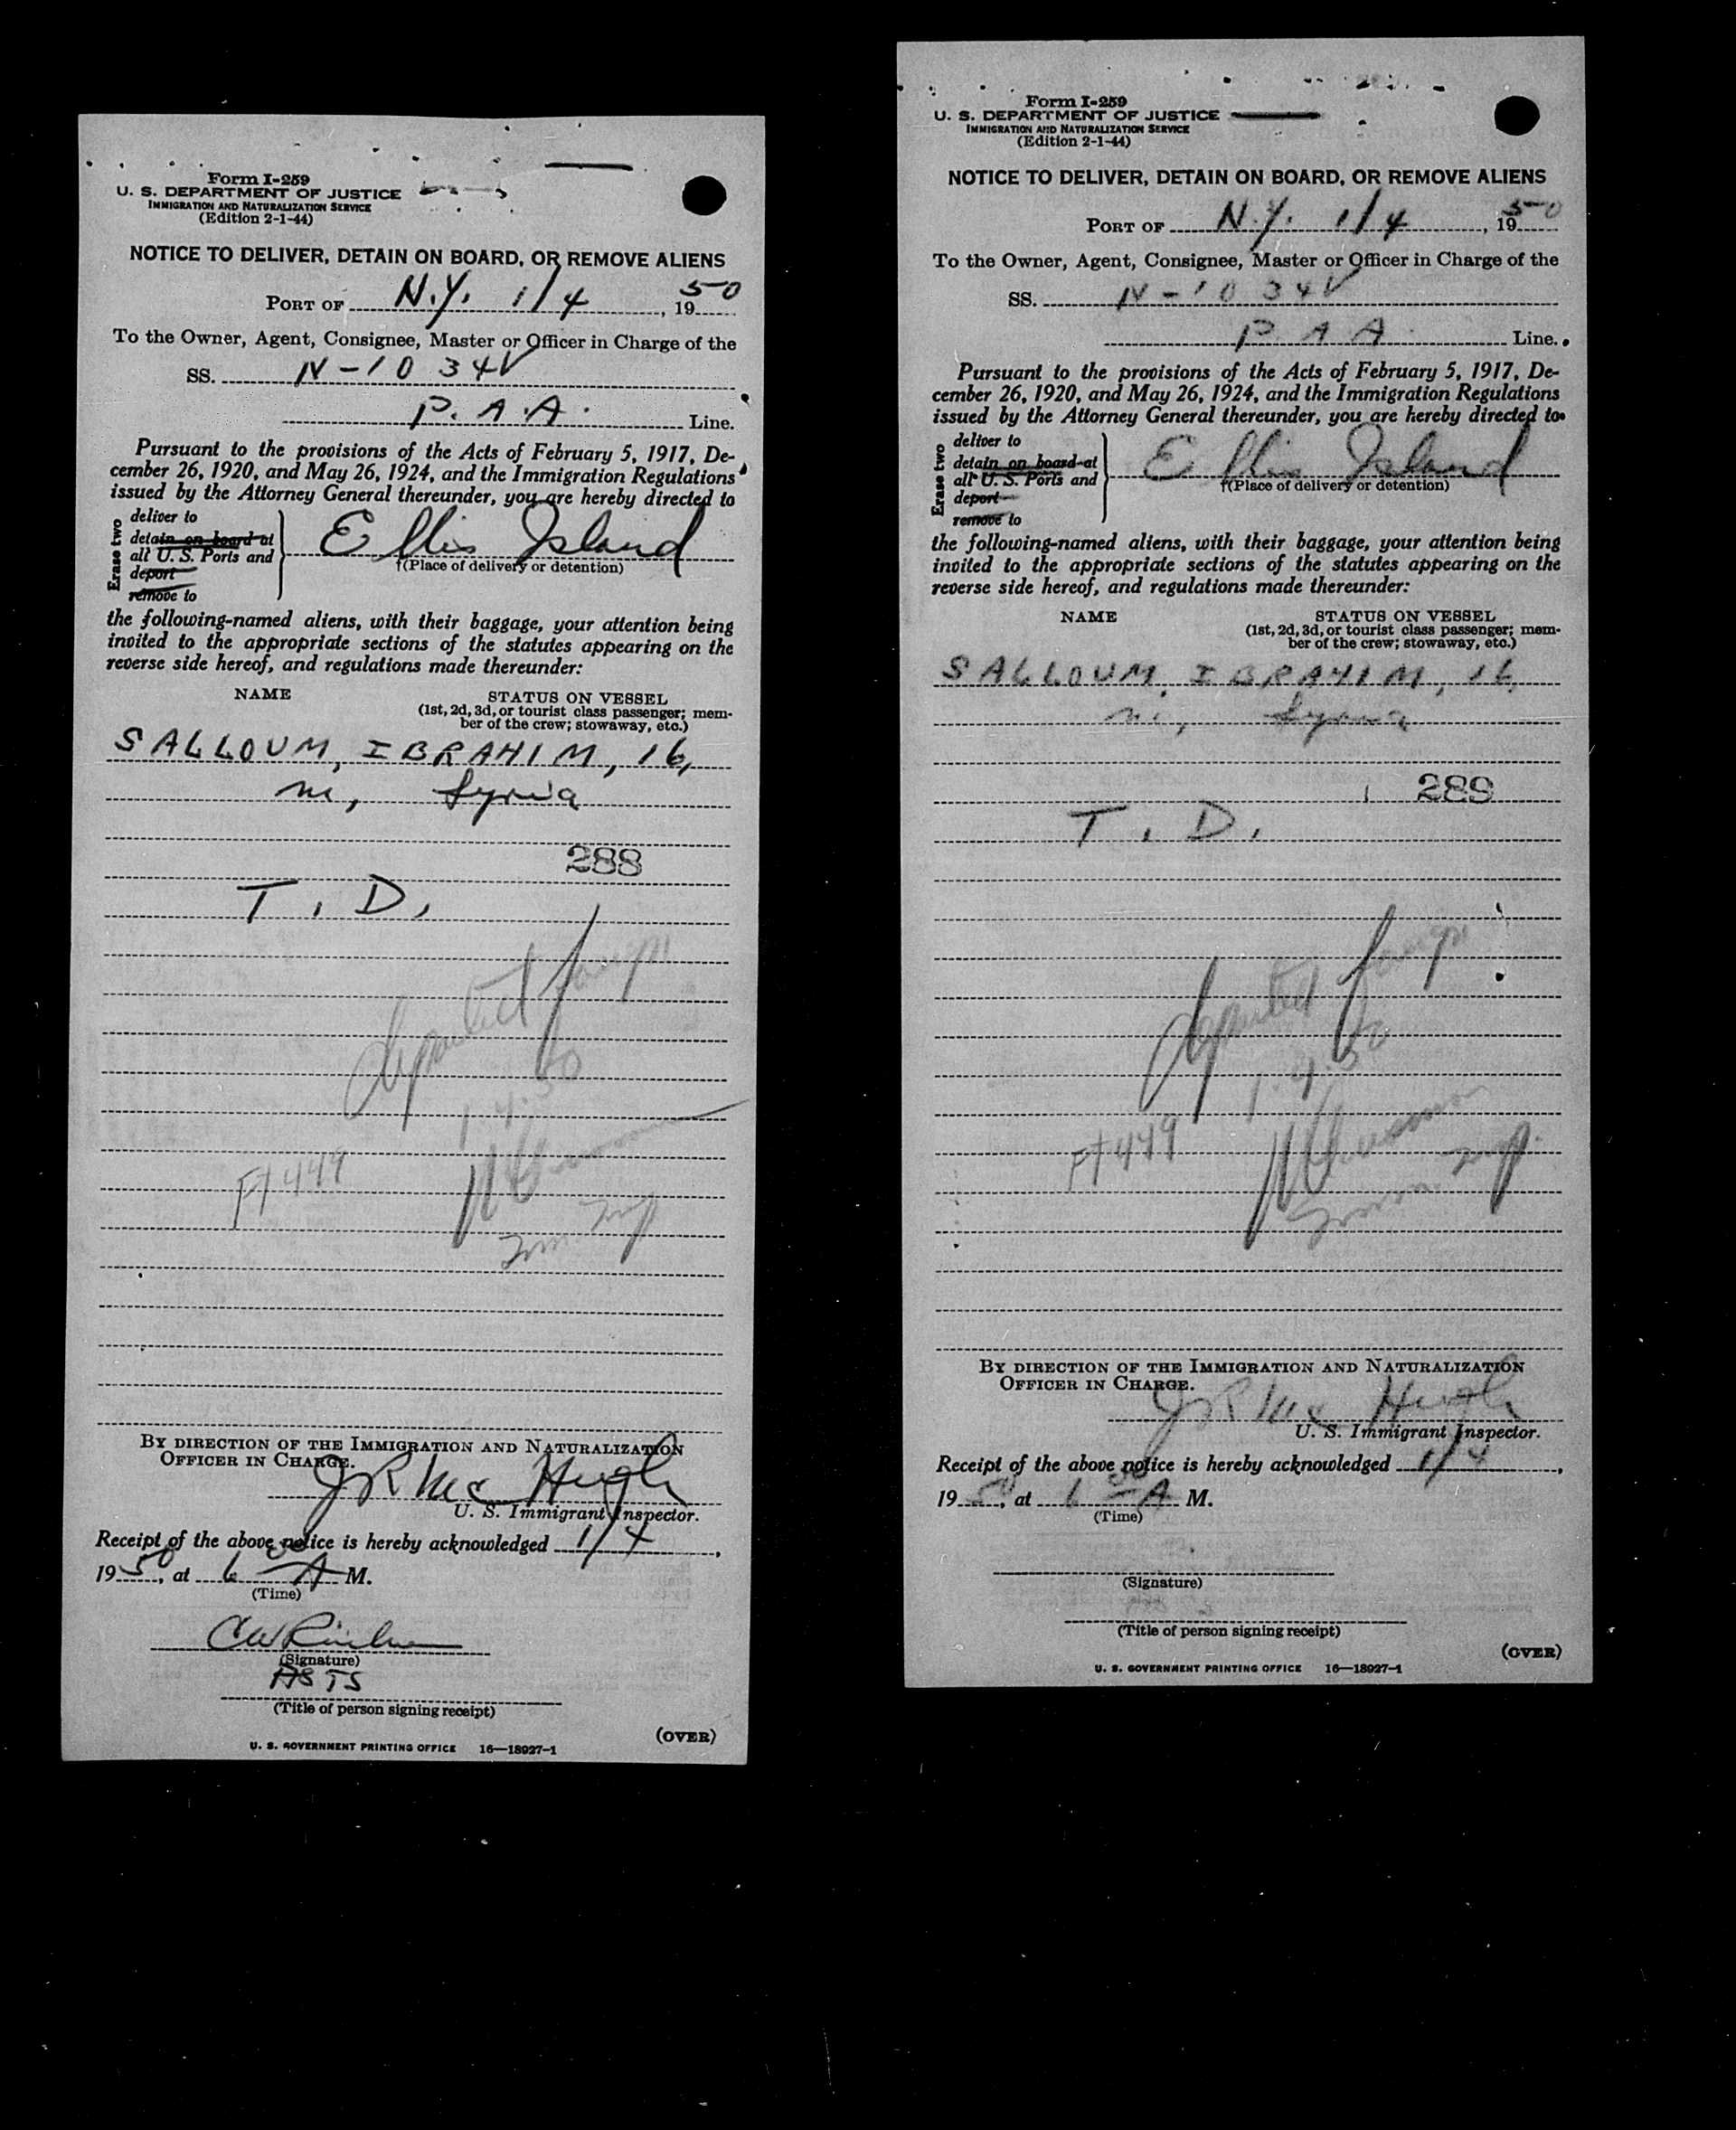 Form I-259
U. S. DEPARTMENT OF JUSTICE
IMMIGRATION AND NATURALIZATION SERVICE
(Edition 2-1-44)
NOTICE TO DELIVER, DETAIN ON BOARD, OR REMOVE ALIENS
PORT OF N.Y. 1/4, 1950
To the Owner, Agent, Consignee, Master or Officer in Charge of the
SS. N-1034V
P.A.A. Line.
Pursuant to the provisions of the Acts of February 5, 1917, De-
cember 26, 1920, and May 26, 1924, and the Immigration Regulations
issued by the Attorney General thereunder, you are hereby directed to
Erase two
deliver to
detain on board at
all U. S. Ports and
deport
remove to
Ellis Island
†(Place of delivery or detention)
the following-named aliens, with their baggage, your attention being
invited to the appropriate sections of the statutes appearing on the
reverse side hereof, and regulations made thereunder:
NAME STATUS ON VESSEL
(1st, 2d, 3d, or tourist class passenger; mem-
ber of the crew; stowaway, etc.)
SALLOUM, IBRAHIM, 16,
m, Syria
288
T. D.
departed foreign
1.4.50
Ft 449
BY DIRECTION OF THE IMMIGRATION AND NATURALIZATION
OFFICER IN CHARGE.
JR McHugh
U. S. Immigrant Inspector.
Receipt of the above notice is hereby acknowledged 1/4,
1950, at 6 00 A M.
(Time)
(Signature)
(Title of person signing receipt)
(OVER)
U. S. GOVERNMENT PRINTING OFFICE 16—18027-1
Form I-259
U. S. DEPARTMENT OF JUSTICE
IMMIGRATION AND NATURALIZATION SERVICE
(Edition 2-1-44)
NOTICE TO DELIVER, DETAIN ON BOARD, OR REMOVE ALIENS
PORT OF N.Y. 1/4, 1950
To the Owner, Agent, Consignee, Master or Officer in Charge of the
SS. N-1034V
P.A.A. Line.
Pursuant to the provisions of the Acts of February 5, 1917, De-
cember 26, 1920, and May 26, 1924, and the Immigration Regulations
issued by the Attorney General thereunder, you are hereby directed to
Erase two
deliver to
detain on board at
all U. S. Ports and
deport
remove to
Ellis Island
†(Place of delivery or detention)
the following-named aliens, with their baggage, your attention being
invited to the appropriate sections of the statutes appearing on the
reverse side hereof, and regulations made thereunder:
NAME STATUS ON VESSEL
(1st, 2d, 3d, or tourist class passenger; mem-
ber of the crew; stowaway, etc.)
SALLOUM, IBRAHIM, 16,
m, Syria
289
T. D.
departed foreign
1.4.50
Ft 449
BY DIRECTION OF THE IMMIGRATION AND NATURALIZATION
OFFICER IN CHARGE.
JR McHugh
U. S. Immigrant Inspector.
Receipt of the above notice is hereby acknowledged 1/4,
1950, at 6 00 A M.
(Time)
(Signature)
(Title of person signing receipt)
(OVER)
U. S. GOVERNMENT PRINTING OFFICE 16—18027-1